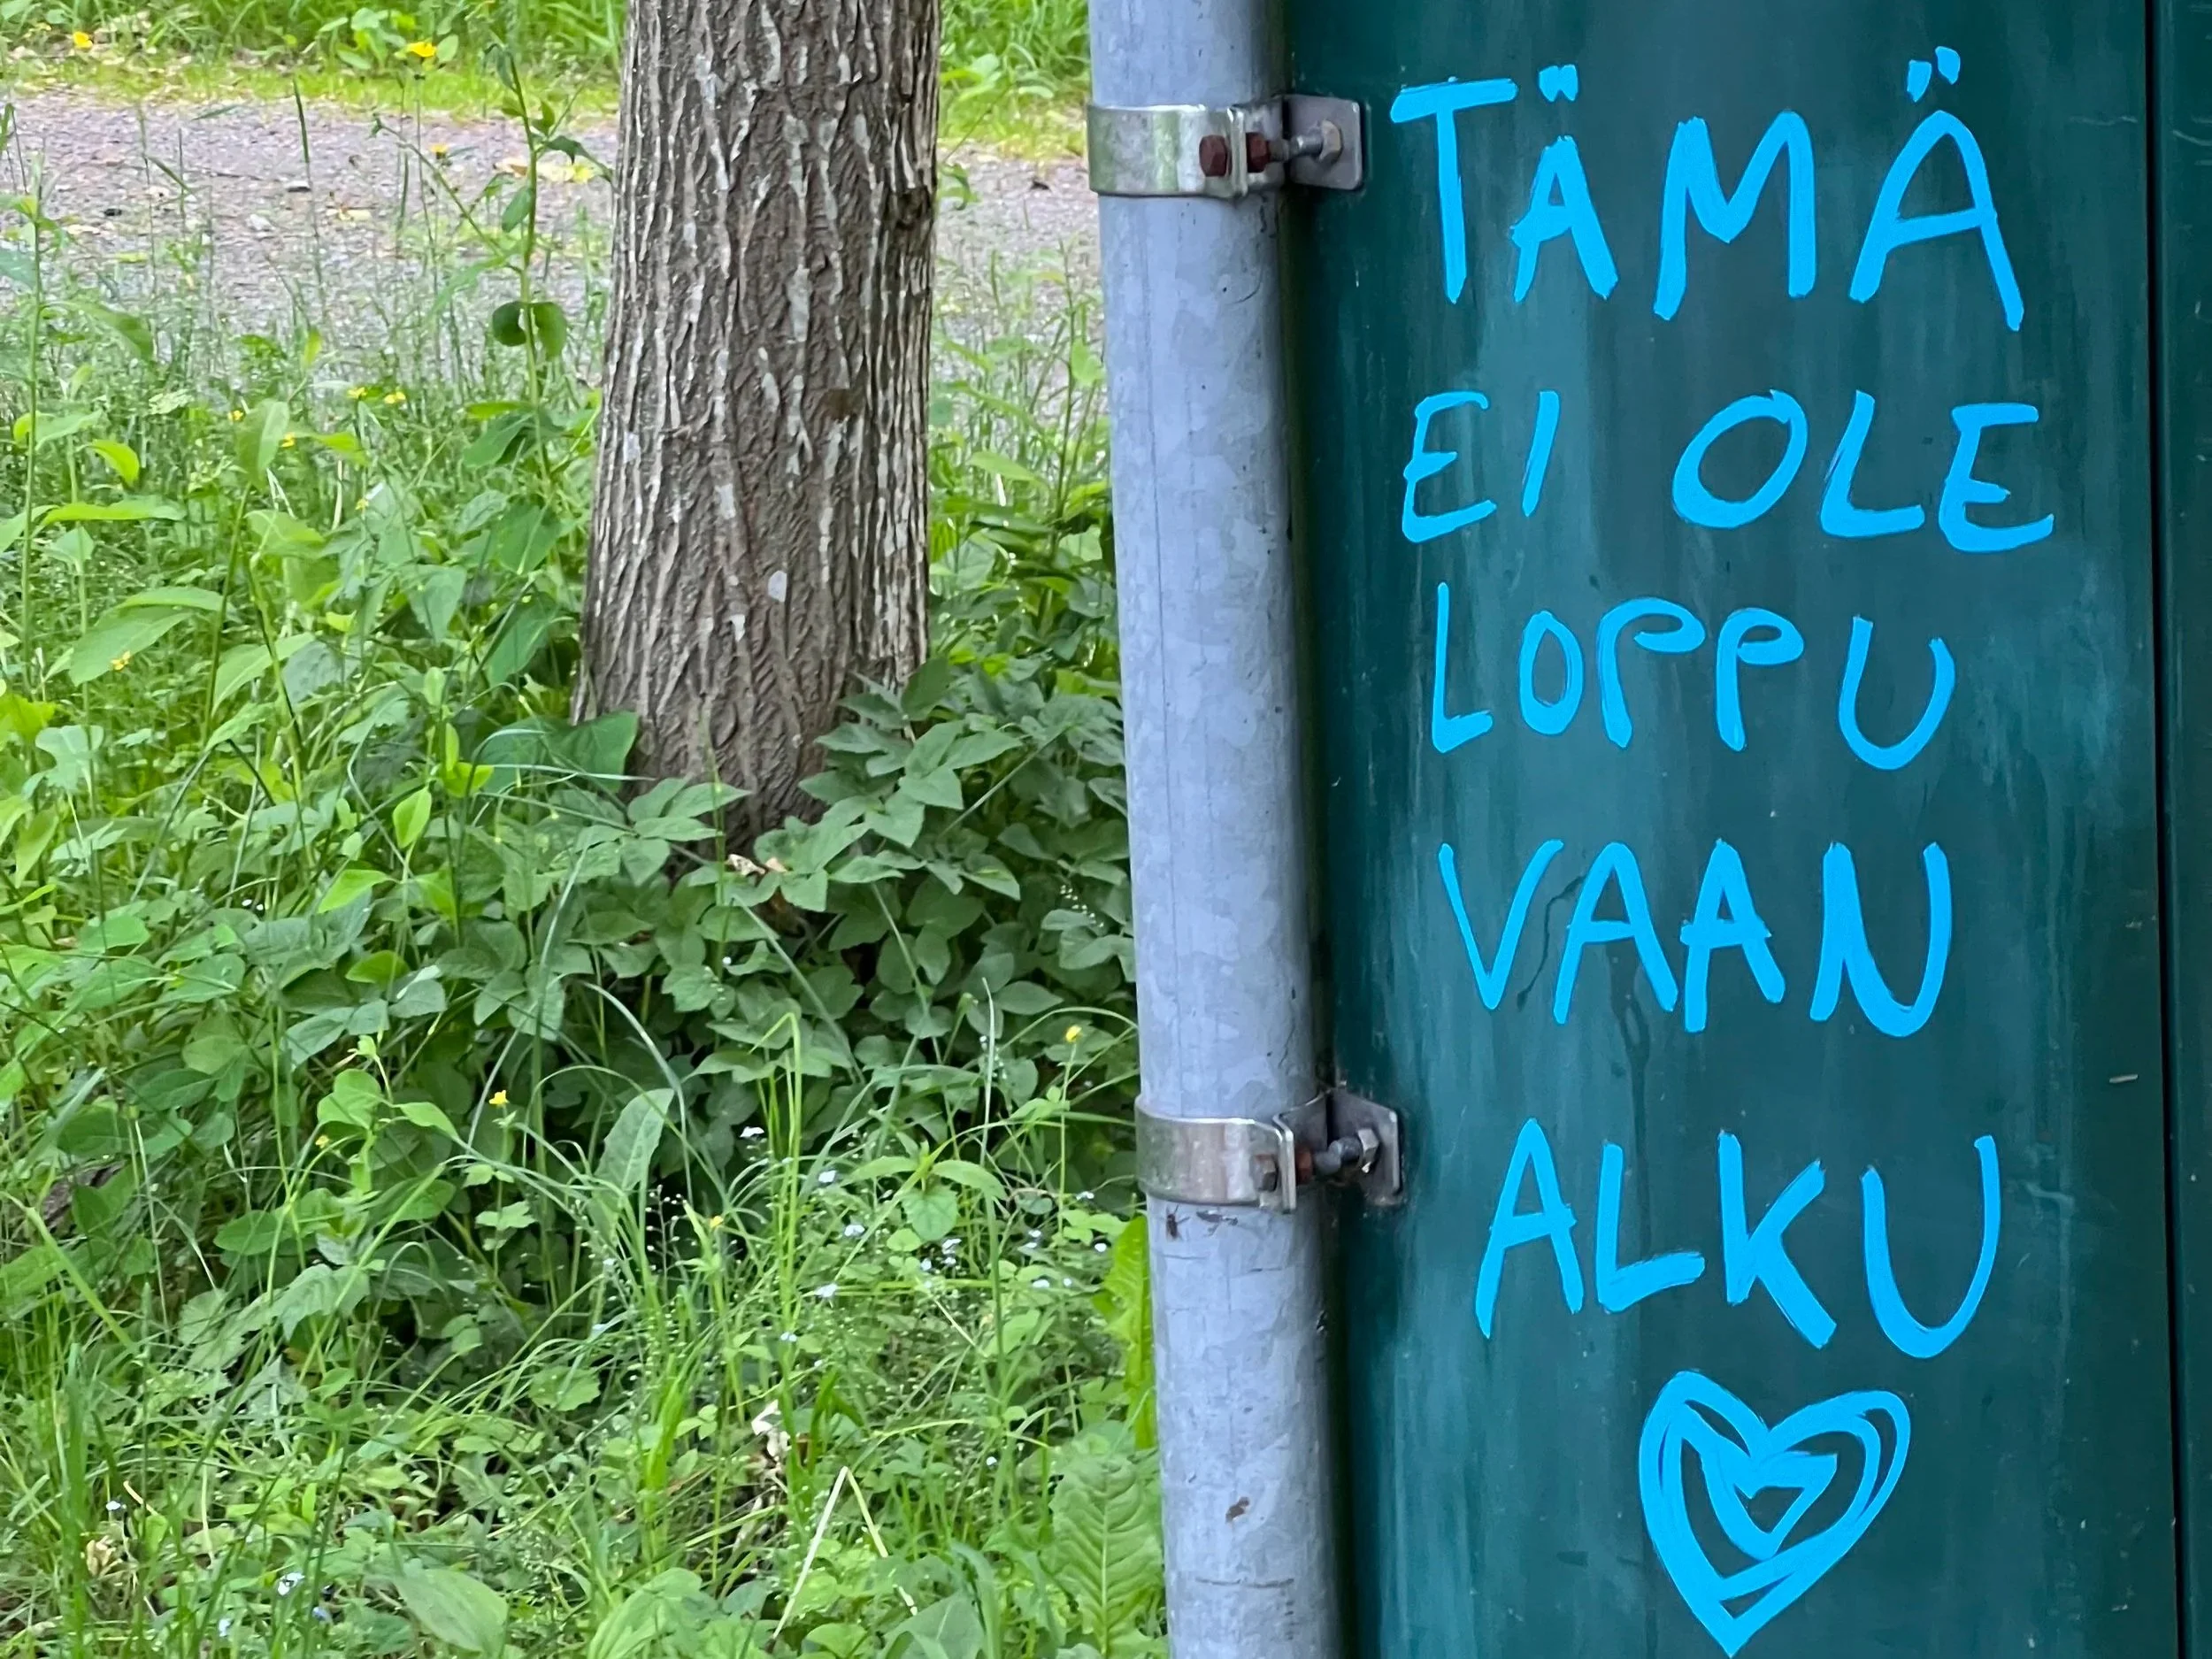 TÄMÄ
EI OLE
LOPPU
VAAN
ALKU